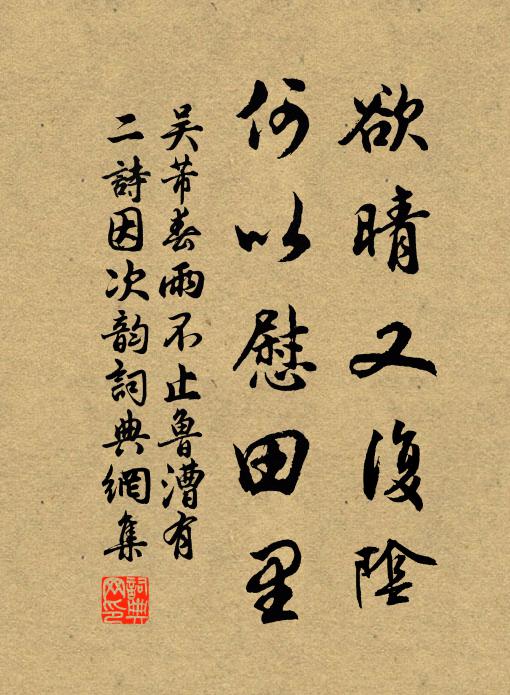 欲晴又復陰
何以慰田里
吴芾春雨不止魯漕有
二詩因次韵詞典網集
詞典
网印